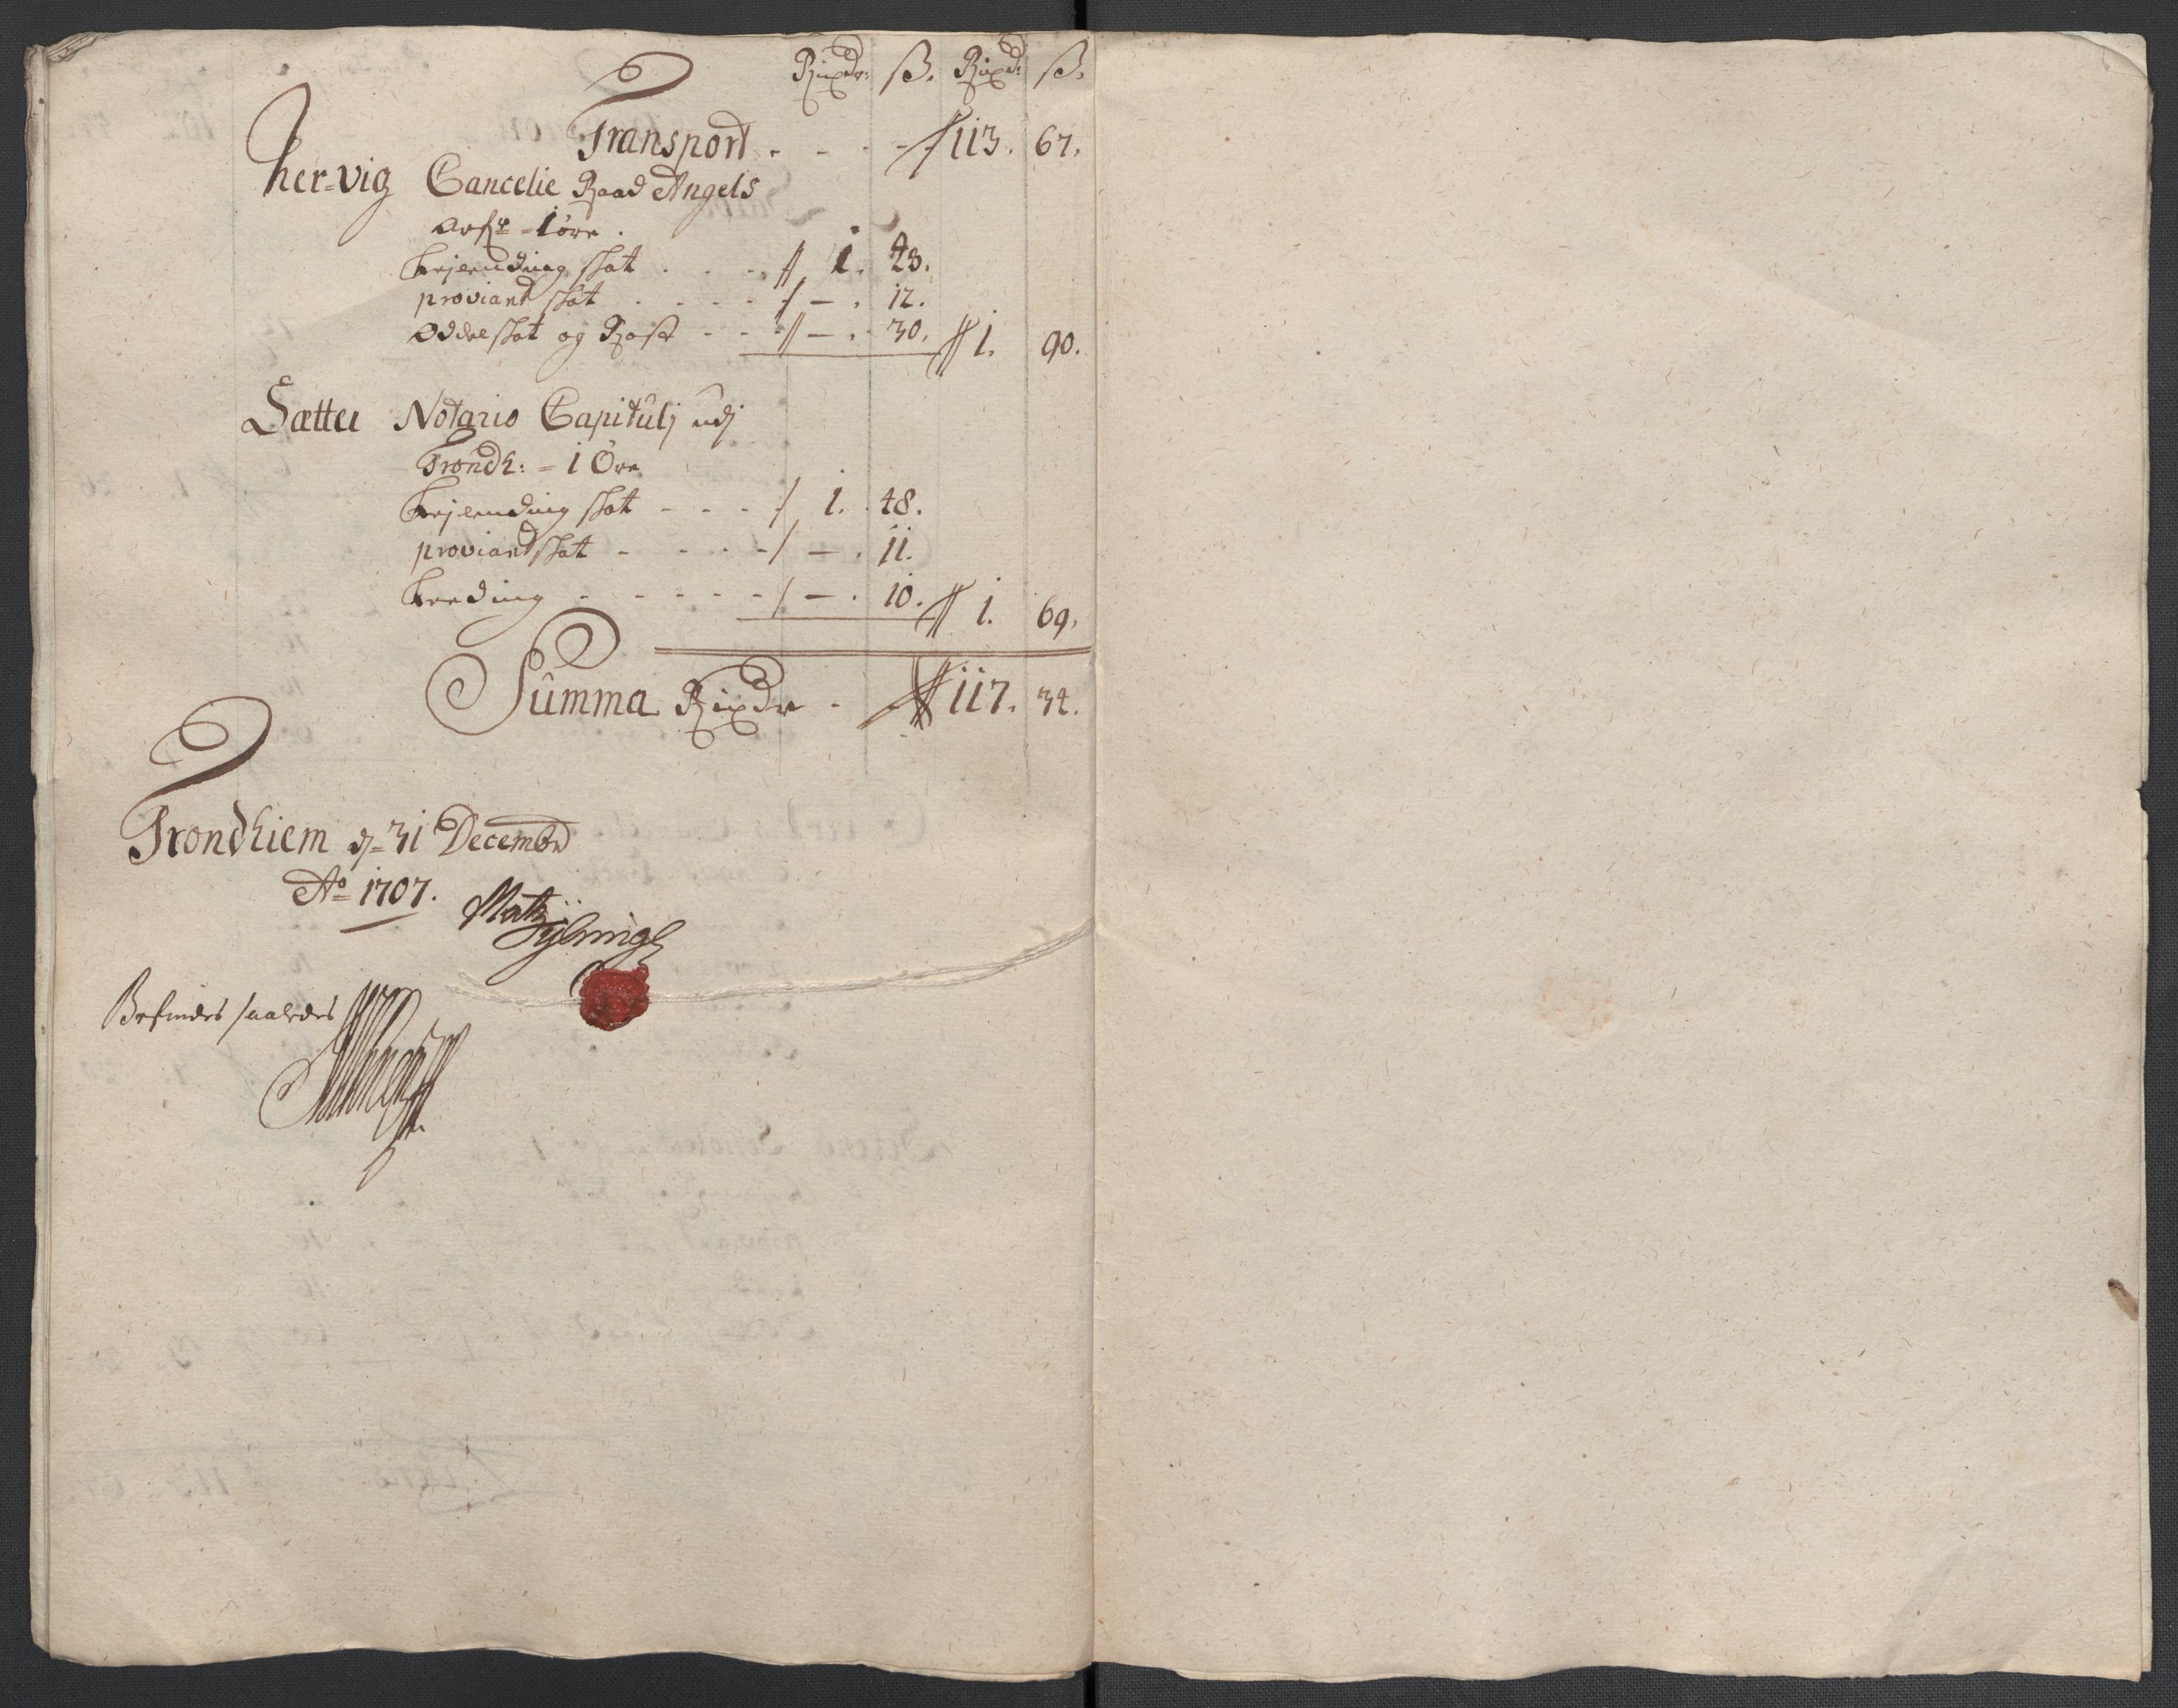 Rixdr: ß. Rixd: ß.
Transport . - - - 113. 67.
her-vig Cancelie Raad Angels
Arf: - 1 øre.
Lejlending skat . . . - 1. 43.
proviant skat . . . - - . 12.
Oddelskat og Rost - - - - . 30. 1. 90.
Sætter Notario Capitulj udj
Trondh: - 1 Øre
Lejlending skat - - - 1. 48.
proviandskat - - . . - - . 11.
Leeding - - - - - - . 10. 1. 69.
Summa Rixdr - 117. 34.
Trondhiem d. 31 Decembr
Ao 1707.
Befindes saaledes